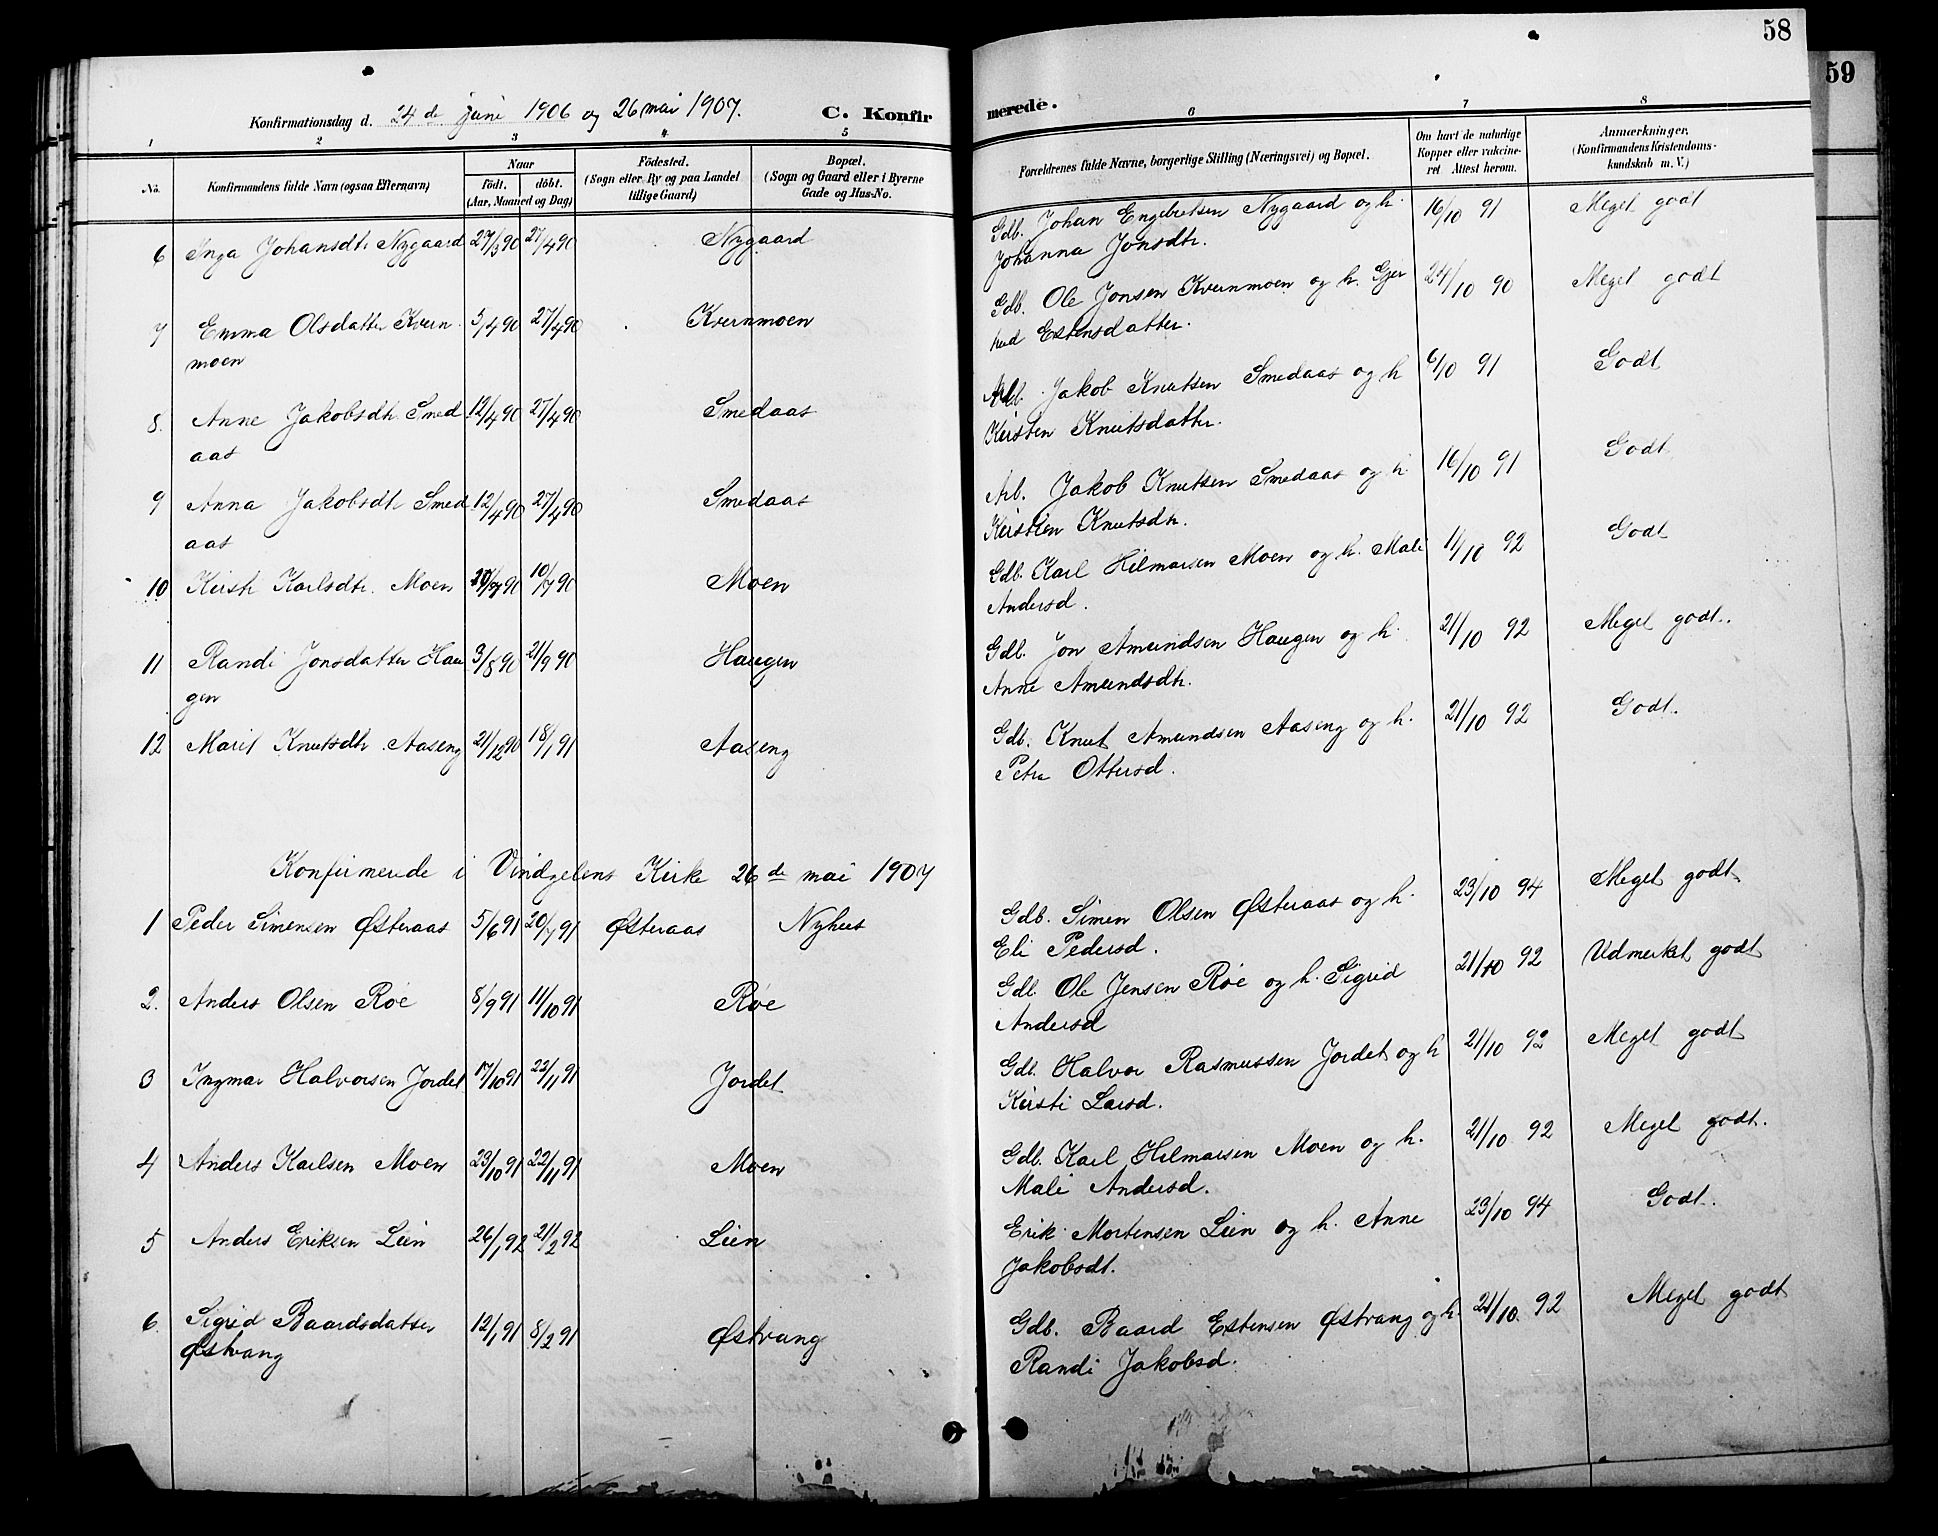 58
59
Konfirmationsdag d. 24 de juni 1906 og 26 mai 1907. C. Konfir
merede.
1 2 3 4 5
6 7 8
No. Konfirmandens fulde Navn (ogsaa Efternavn) Naar födt. döbt. (Aar, Maaned og Dag) Födested. (Sogn eller By og paa Landet tillige Gaard) Bopæl. (Sogn og Gaard eller i Byerne Gade og Hus-No.
Forældrenes fulde Navne, borgerlige Stilling (Næringsvei) og Bopæl. Om havt de naturlige Kopper eller vakcineret Attest herom. Anmærkninger. (Konfirmandens Kristendomskundskab m. V.)
6 Inga Johansdtr Nygaard 27/3 90 27/4 90 Nygaard
Gdb. Johan Engebretsen Nygaard og h. 16/10 91 Meget godt
Johanna Jonsdtr.
7 Emma Olsdatter Kvern 5/4 90 27/4 90 Kvernmoen
moen
Gdb. Ole Jonsen Kvernmoen og h. Gjer 24/10 90 Meget godt
trud Estensdatter.
8. Anne Jakobsdtr Smed 12/4 90 27/4 90 Smedaas
aas
Arb. Jakob Knutsen Smedaas og h 6/10 91 Godt
Kirsten Knutsdatter.
9 Anna Jakobsdt. Smed 12/4 90 27/4 90 Smedaas
aas
Arb. Jakob Knutsen Smedaas og h 16/10 91 Godt
Kirsten Knutsdtr.
10 Kirsti Karlsdtr. Moen 90 10/7 90 Moen
Gdb. Karl Hilmarsen Moen og h. Mali 11/10 92 Godt
Andersd.
11 Randi Jonsdatter Hau 3/8 90 21/9 90 Haugen
gen
Gdb. Jon Amundsen Haugen og h. 21/10 92 Meget godt.
Anne Amundsdtr.
12 Marit Knutsdtr. Aaseng 21/12 90 18/1 91 Aaseng
Gdb. Knut Amundsen Aaseng og h. 21/10 92 Godt.
Petra Ottersd.
Konfirmerede i Vindgelens Kirke 26 de mai 1907
1 Peder Simensen Østeraas 5/6 91 20/7 91 Østeraas Nyhus
Gdb. Simen Olsen Østeraas og h. 23/10 94 Meget godt
Eli Pedersd.
2. Anders Olsen Røe 8/9 91 11/10 91 Røe
Gdb. Ole Jensen Røe og h. Sigrid 21/10 92 Udmerket godt
Andersd
3 Ingmar Halvorsen Jordet 17/10 91 22/11 91 Jordet
Gdb. Halvor Rasmussen Jordet og h 21/10 92 Meget godt
Kirsti Larsd.
4 Anders Karlsen Moen 23/10 91 22/11 91 Moen
Gdb. Karl Hilmarsen Moen og h. 21/10 92 Meget godt.
Mali Andersd.
5 Anders Eriksen Lien 26/1 92 21/2 92 Lien
Erik Mortensen Lien og h. Anne 23/10 94 Godt.
Jakobsdt.
6. Sigrid Baardsdatter 12/1 91 8/2 91 Østvang
Østvang
Gdb. Baard Estensen Østvang og h. 21/10. 92 Meget godt
Randi Jakobsd.